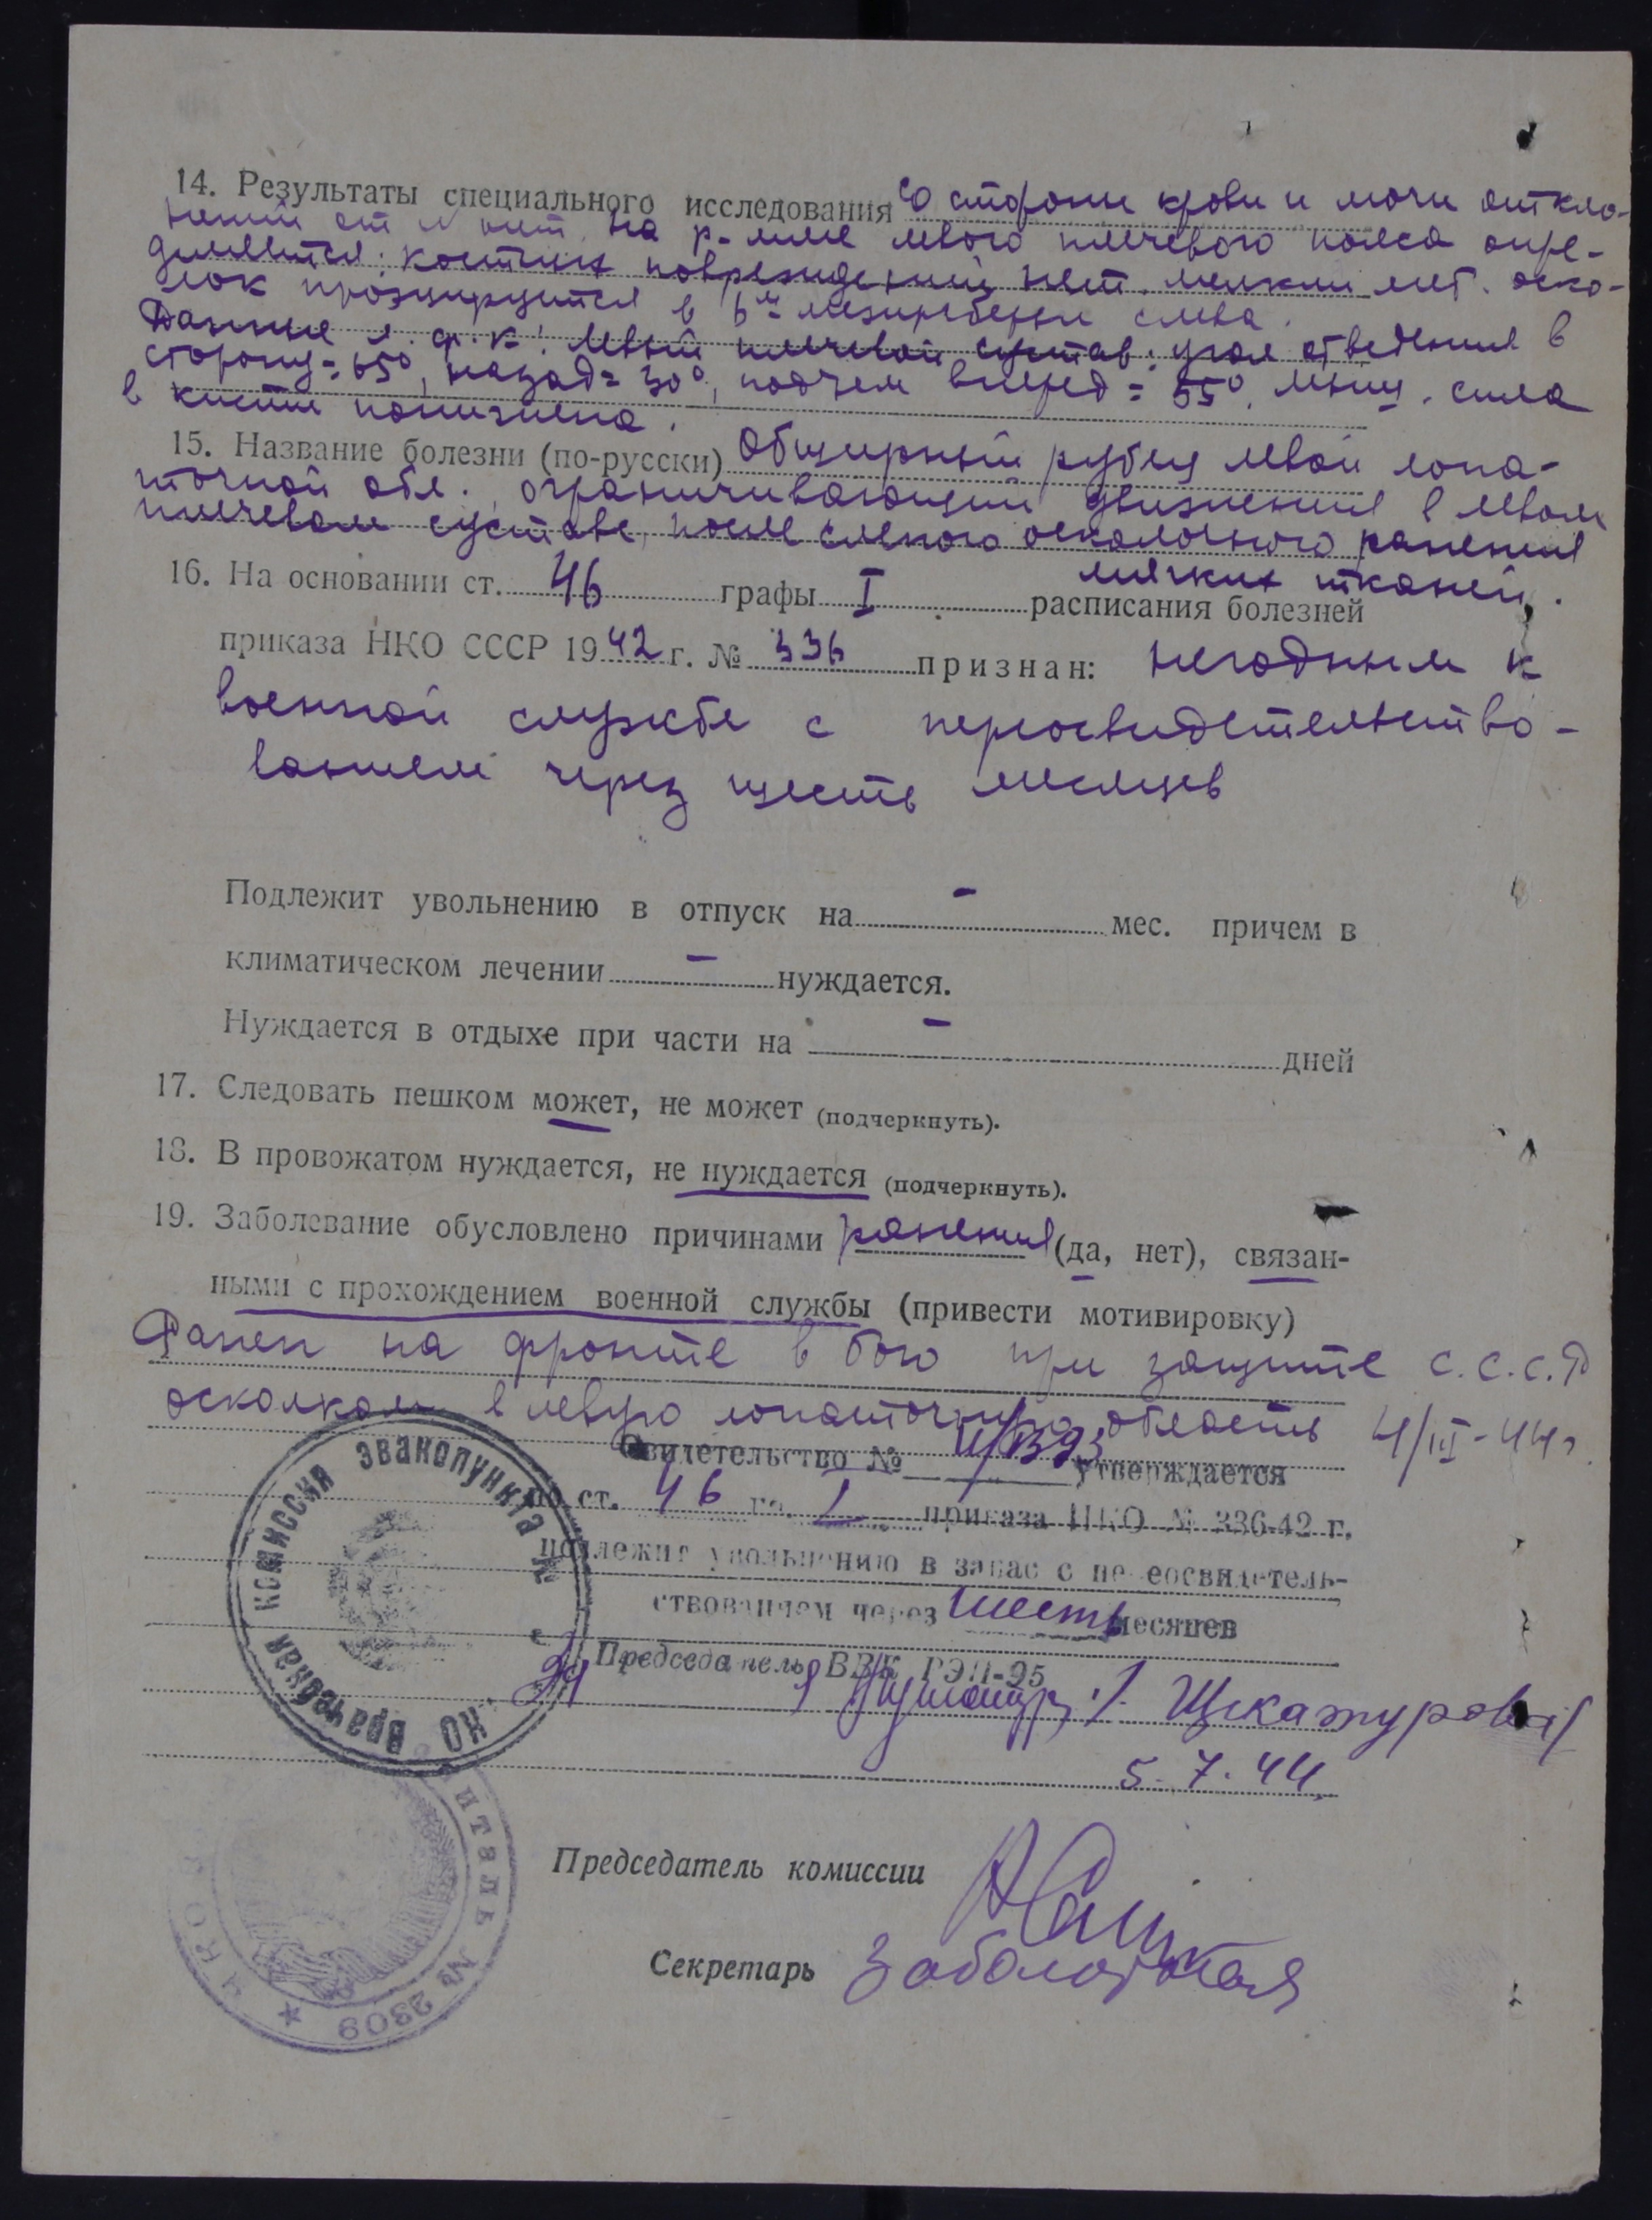 14. Результаты специального исследования со стороны крови и мочи откло-
нений от N нет. На р-мме левого плечевого пояса опре-
деляется: костных повреждений нет. мелкий мет. оско-
лок проэцируется в 6м межиреберьи слева.
Данные л. ф. к.: левый плечевой сустав: угол отведения в
сторону = 65°, назад = 30°, подъем вперед = 55°. мышц. сила
в кисти понижена.
15. Название болезни (по-русски) Обширный рубец левой лопа-
точной обл., ограничивающий движения в левом
плечевом суставе, после слепого осколочного ранения
мягких тканей.
16. На основании ст. 46 графы I расписания болезней
приказа НКО СССР 1942 г. № 336 признан: негодным к
военной службе с переосвидетельство-
ванием через шесть месяцев
Подлежит увольнению в отпуск на - мес. причем в
климатическом лечении - нуждается.
Нуждается в отдыхе при части на - дней
17. Следовать пешком может, не может (подчеркнуть).
18. В провожатом нуждается, не нуждается (подчеркнуть).
19. Заболевание обусловлено причинами ранения (да, нет), связан-
ными с прохождением военной службы (привести мотивировку)
Ранен на фронте в бою при защите С.С.С.Р
осколком в левую лопаточную область 4/III-44г.
Свидетельство № утверждается
по ст. 46 гр. I приказа НКО № 336-42 г.
подлежит увольнению в запас с переосвидетель-
ствованием через шесть месяцев
Председатель ВВК РЭП-95
/Щекатурова/
5.7.44
Врачебная комиссия эвакопункта №
НКО
Председатель комиссии
Секретарь Заболотская
№ 2309